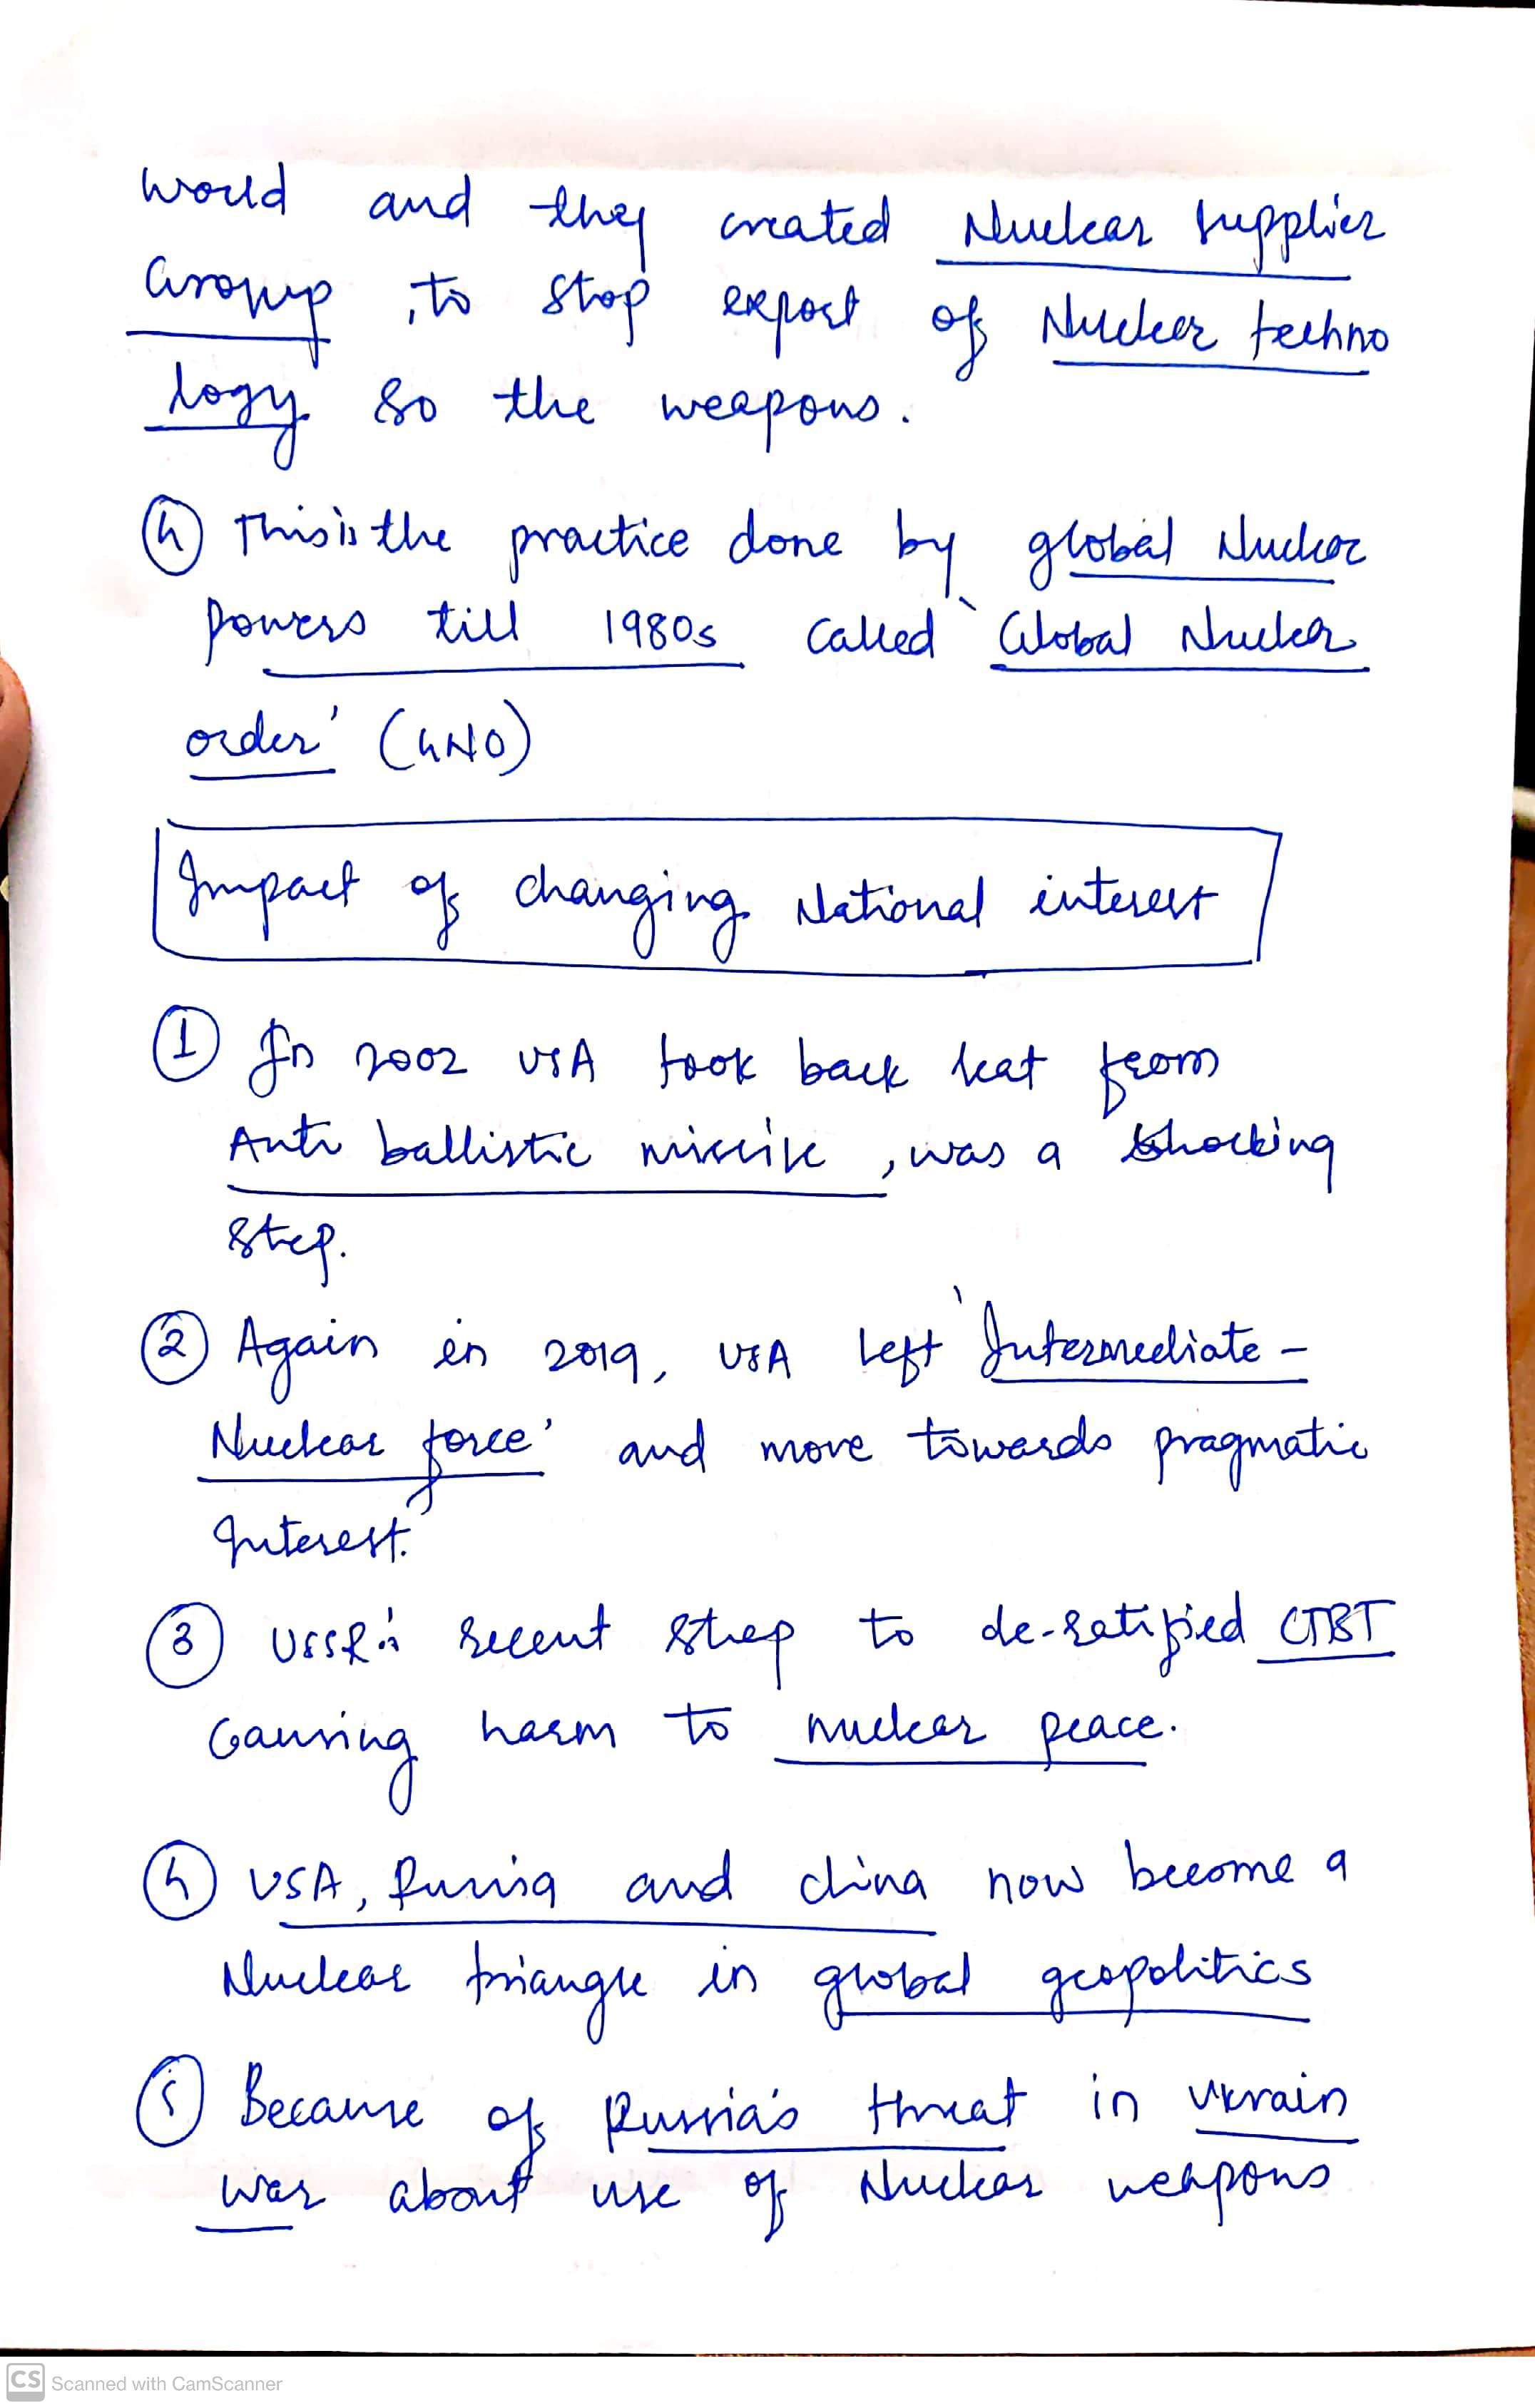 world and they created Nuclear Supplier
Group, to stop export of Nuclear techno
logy so the weapons.
④ This is the practice done by global Nuclear
powers till 1980s called 'Global Nuclear
order' (GNO)
Impact of changing National interest
① In 2002 USA took back seat from
Anti ballistic missile, was a shocking
step.
② Again in 2019, USA left 'Intermediate-
Nuclear force' and move towards pragmatic
Interest.
③ USSR's recent step to de-ratified CTBT
causing harm to nuclear peace.
④ USA, Russia and china now become a
Nuclear triangle in global geopolitics
⑤ Because of Russia's threat in Ukrain
war about use of Nuclear weapons
CS Scanned with CamScanner